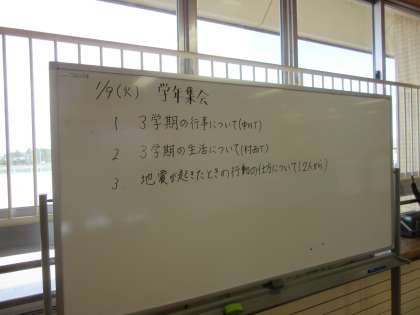 1/9(火) 学年集会
1 3学期の行事について(中川T)
2 3学期の生活について(村西T)
3 地震が起きたときの行動の仕方について(2人から)